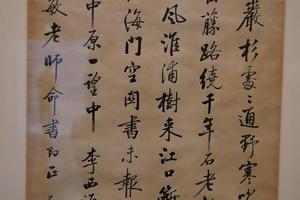 巖杉處處通野寒
藤路繞千年石老
風淮浦樹來江口
海門空闊書未報
中原一望中 李西涯
老師命書即正